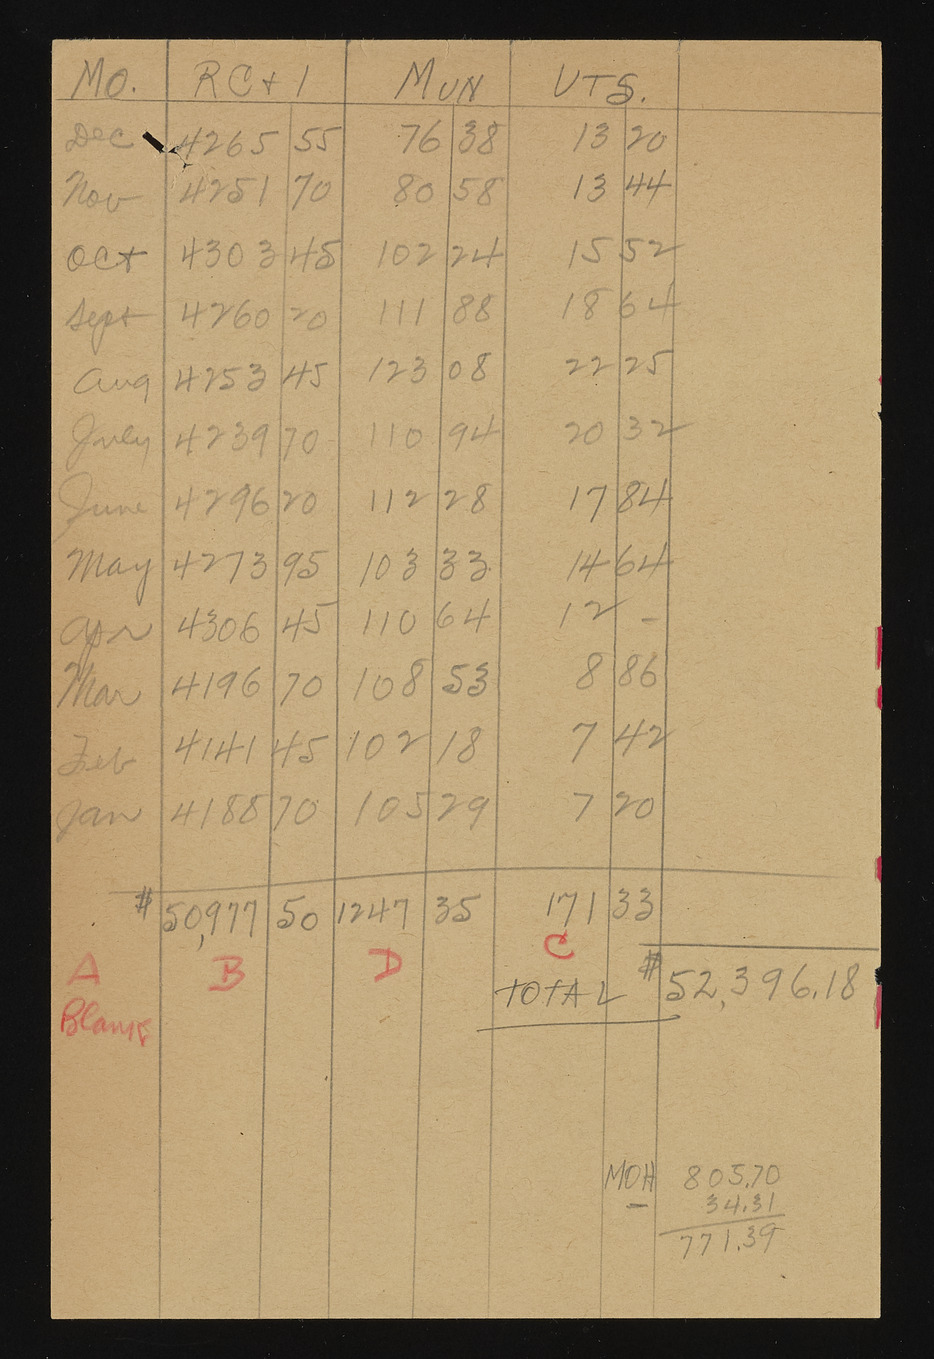 Mo. RC+1 MUN UTS.
Dec 4265 55 76 38 13 20
Nov 4251 70 80 58 13 44
Oct 4303 45 102 24 15 52
Sept 4260 20 111 88 18 64
Aug 4253 45 123 08 22 25
July 4239 70 110 94 20 32
June 4296 20 112 28 17 84
May 4273 95 103 33 14 64
Apr 4306 45 110 64 12 -
Mar 4196 70 108 53 8 86
Feb 4141 45 102 18 7 42
Jan 4188 70 105 29 7 20
# 50,977 50 1247 35 171 33
A B D C
Blank
TOTAL # 52,396.18
MOH 805.70
- 34.31
771.39